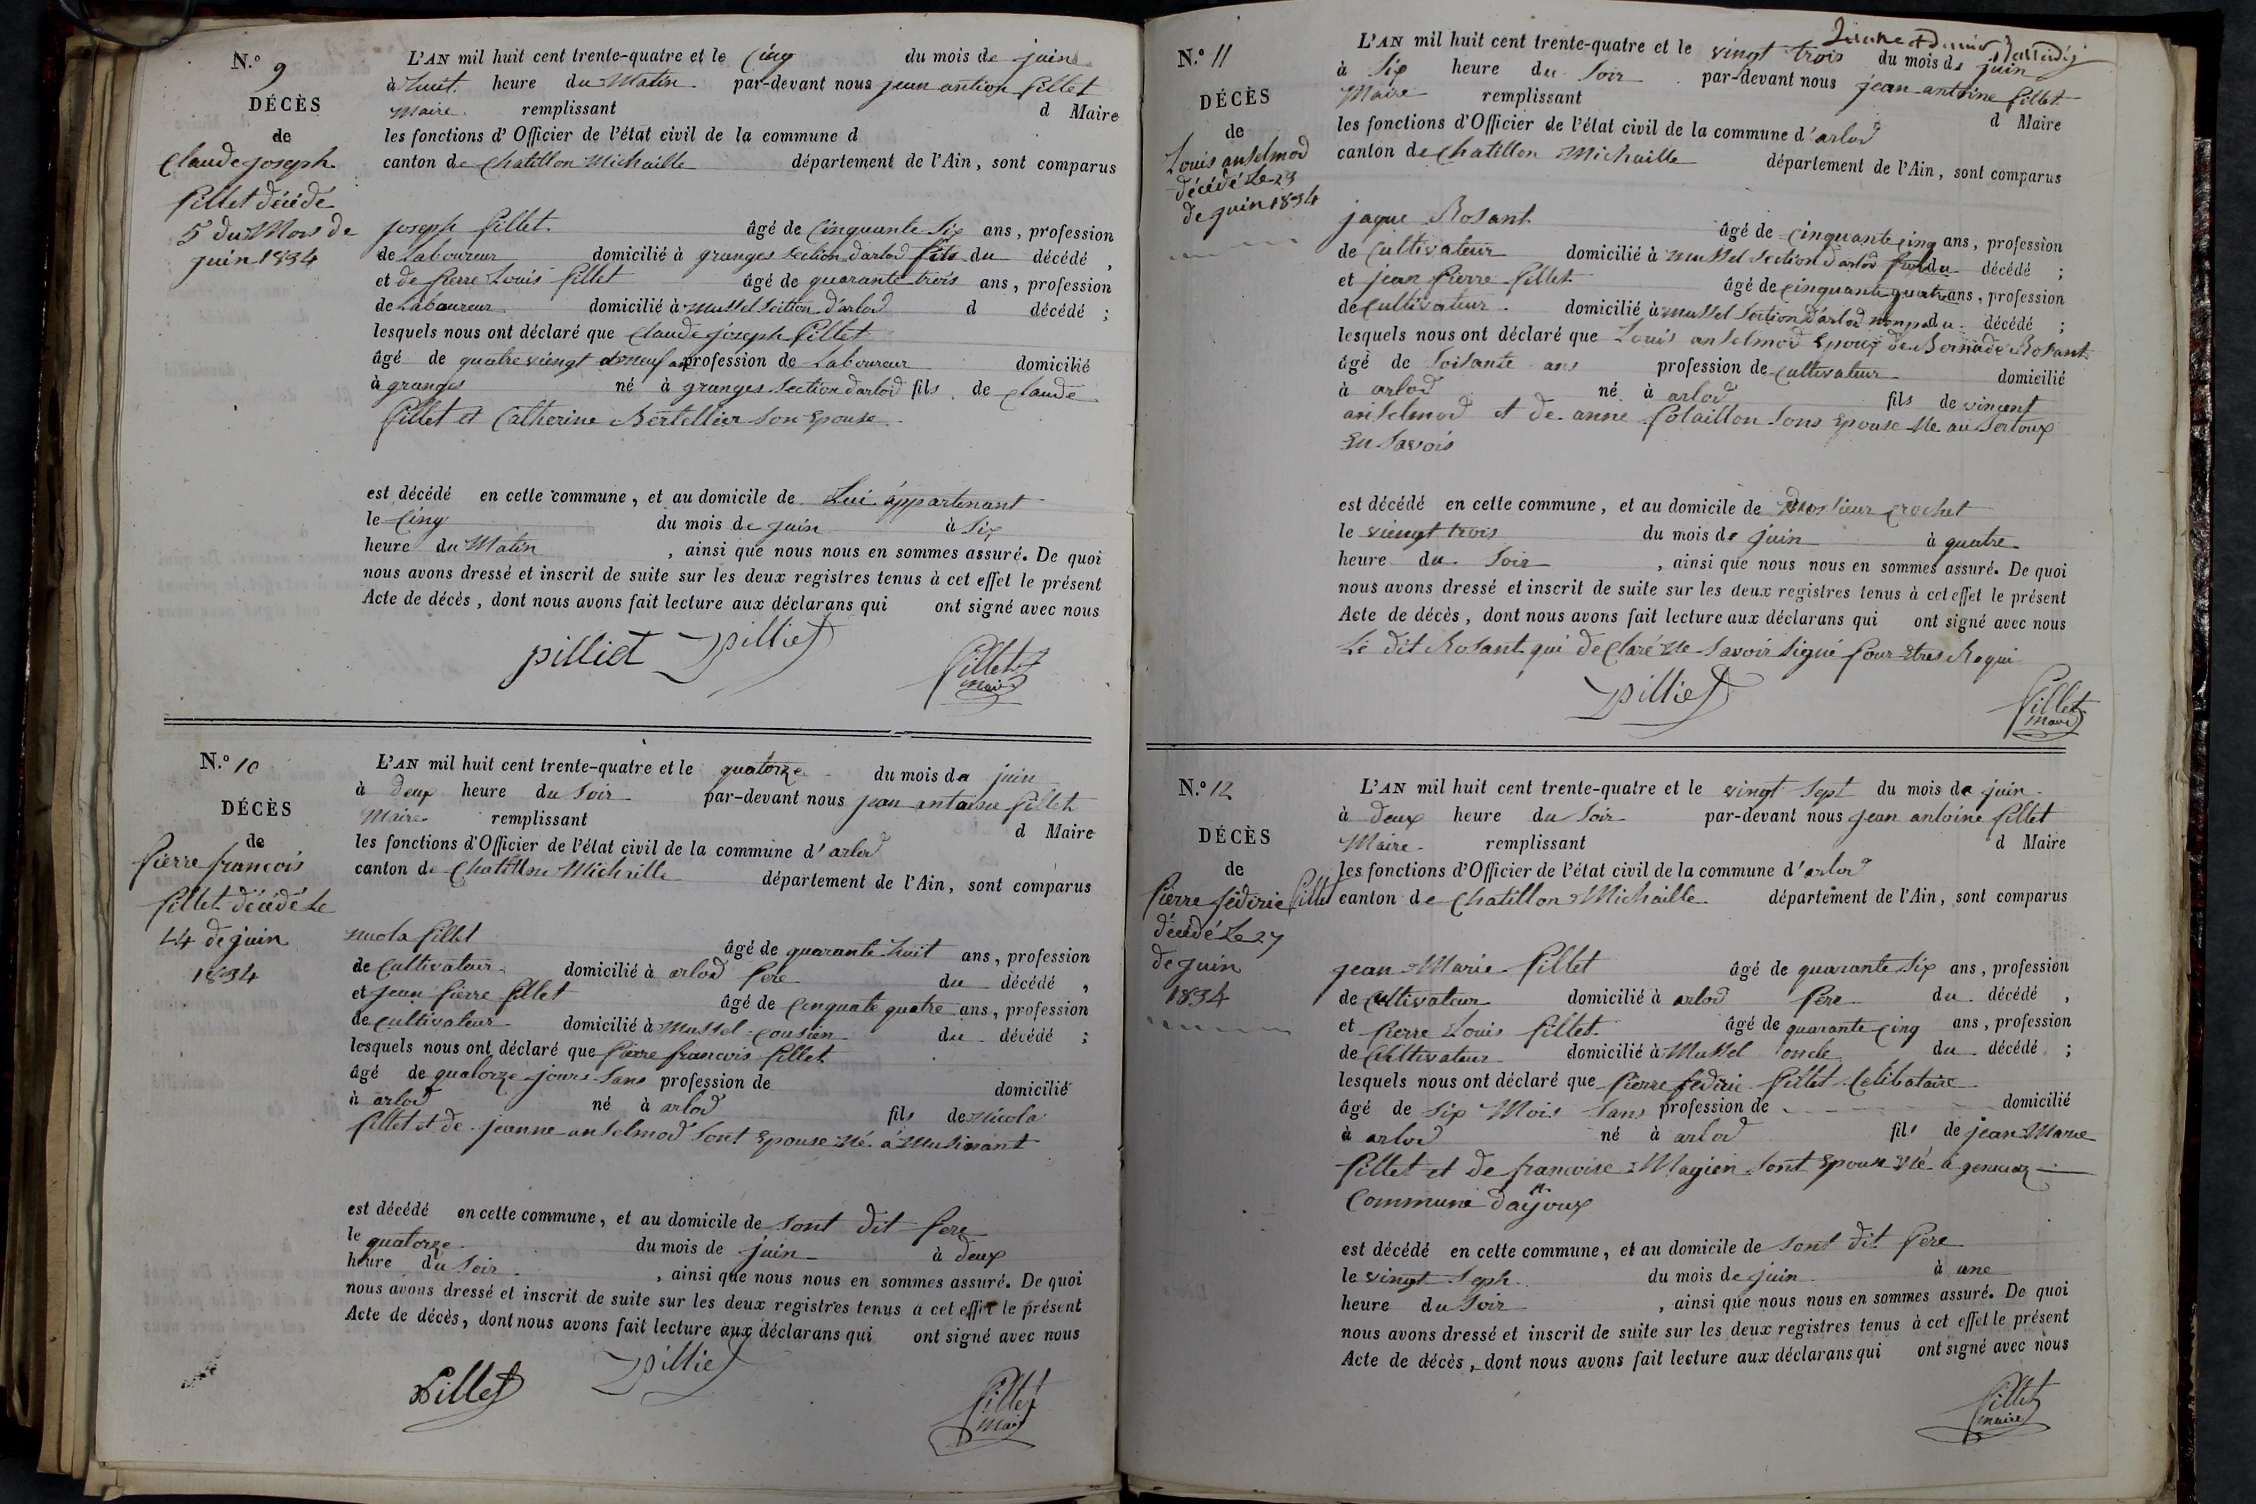 N.° 9
DÉCÈS
de
Claude joseph
Pillet décédé
5 du Mois de
juin 1834
L'AN mil huit cent trente-quatre et le Cinq du mois de juin
à huit heure du Matin par-devant nous jean antion Pillet
Maire remplissant d Maire
les fonctions d'Officier de l'état civil de la commune d
canton de Chatillon Michaille département de l'Ain, sont comparus
joseph Pillet âgé de Cinquante Six ans, profession
de Laboureur domicilié à granges Section d'arlod fils du décédé,
et de Pierre Louis Pillet âgé de quarante trois ans, profession
de Laboureur domicilié à Mussel Section d'arlod d décédé;
lesquels nous ont déclaré que Claude joseph Pillet
âgé de quatre viengt profession de Laboureur domicilié
à granges né à granges Section d'arlod fils de Claude
Pillet et Catherine Bertellier Son Epouse
est décédé en cette commune, et au domicile de Lui appartenant
le Cinq du mois de juin à Six
heure du Matin, ainsi que nous nous en sommes assuré. De quoi
nous avons dressé et inscrit de suite sur les deux registres tenus à cet effet le présent
Acte de décès, dont nous avons fait lecture aux déclarans qui ont signé avec nous
pilliet pilliet Pillet
Maire
N.° 10
DÉCÈS
de
Pierre francois
Pillet décédé Le
14 de juin
1834
L'AN mil huit cent trente-quatre et le quatorze du mois de juin
à deux heure du Soir par-devant nous jean antoine Pillet
Maire remplissant d Maire
les fonctions d'Officier de l'état civil de la commune d'arlod
canton de Chatillon Michaille département de l'Ain, sont comparus
nicola Pillet âgé de quarante huit ans, profession
de Cultivateur domicilié à arlod Pere du décédé,
et jean Pierre Pillet âgé de Cinquate quatre ans, profession
de Cultivateur domicilié à Mussel Cousien du décédé;
lesquels nous ont déclaré que Pierre francois Pillet
âgé de quatorze jours Sans profession de domicilié
à arlod né à arlod fils de nicola
Pillet et de jeanne anselmod Sont Epouse Né à Musinant
est décédé en cette commune, et au domicile de Sont dit Pere
le quatorze du mois de juin à deux
heure du Soir, ainsi que nous nous en sommes assuré. De quoi
nous avons dressé et inscrit de suite sur les deux registres tenus à cet effet le présent
Acte de décès, dont nous avons fait lecture aux déclarans qui ont signé avec nous
Pillet pilliet Pillet
Maire
N.° 11
DÉCÈS
de
Louis anselmod
décédé Le 23
de juin 1834
L'AN mil huit cent trente-quatre et le vingt trois du mois de juin
à Six heure du Soir par-devant nous jean antoine Pillet
Maire remplissant d Maire
les fonctions d'Officier de l'état civil de la commune d'arlod
canton de Chatillon Michaille département de l'Ain, sont comparus
jaque Rosant âgé de Cinquante Cinq ans, profession
de Cultivateur domicilié à Mussel Section d'arlod du décédé;
et jean Pierre Pillet âgé de Cinquante quatre ans, profession
de Cultivateur domicilié à Mussel Section d'arlod du décédé;
lesquels nous ont déclaré que Louis anselmod Epoux de Bernade Rosant
âgé de Soisante ans profession de Cultivateur domicilié
à arlod né à arlod fils de vincent
anselmod et de anne Polaillon Sons Epouse Ne au
En Savois
est décédé en cette commune, et au domicile de Mosieur Crochet
le viengt trois du mois de juin à quatre
heure du Soir, ainsi que nous nous en sommes assuré. De quoi
nous avons dressé et inscrit de suite sur les deux registres tenus à cet effet le présent
Acte de décès, dont nous avons fait lecture aux déclarans qui ont signé avec nous
Le dit Rosant qui de Claré Ne Savoir Signé Pour Etres Requi
pilliet Pillet
Maire
N.° 12
DÉCÈS
de
Pierre féderic Pillet
décédé Le 27
de juin
1834
L'AN mil huit cent trente-quatre et le vingt Sept du mois de juin
à deux heure du Soir par-devant nous jean antoine Pillet
Maire remplissant d Maire
les fonctions d'Officier de l'état civil de la commune d'arlod
canton de Chatillon Michaille département de l'Ain, sont comparus
jean Marie Pillet âgé de quarante Six ans, profession
de Cultivateur domicilié à arlod Pere du décédé,
et Pierre Louis Pillet âgé de quarante Cinq ans, profession
de Cultivateur domicilié à Mussel oncle du décédé;
lesquels nous ont déclaré que Pierre féderic Pillet Celibataire
âgé de Six Mois Sans profession de domicilié
à arlod né à arlod fils de jean Marie
Pillet et de francoise Magien Sont Epouse Né à
Commune d'ajoux
est décédé en cette commune, et au domicile de Sont dit Pere
le vingt Seph du mois de juin à une
heure du Soir, ainsi que nous nous en sommes assuré. De quoi
nous avons dressé et inscrit de suite sur les deux registres tenus à cet effet le présent
Acte de décès, dont nous avons fait lecture aux déclarans qui ont signé avec nous
Pillet
maire